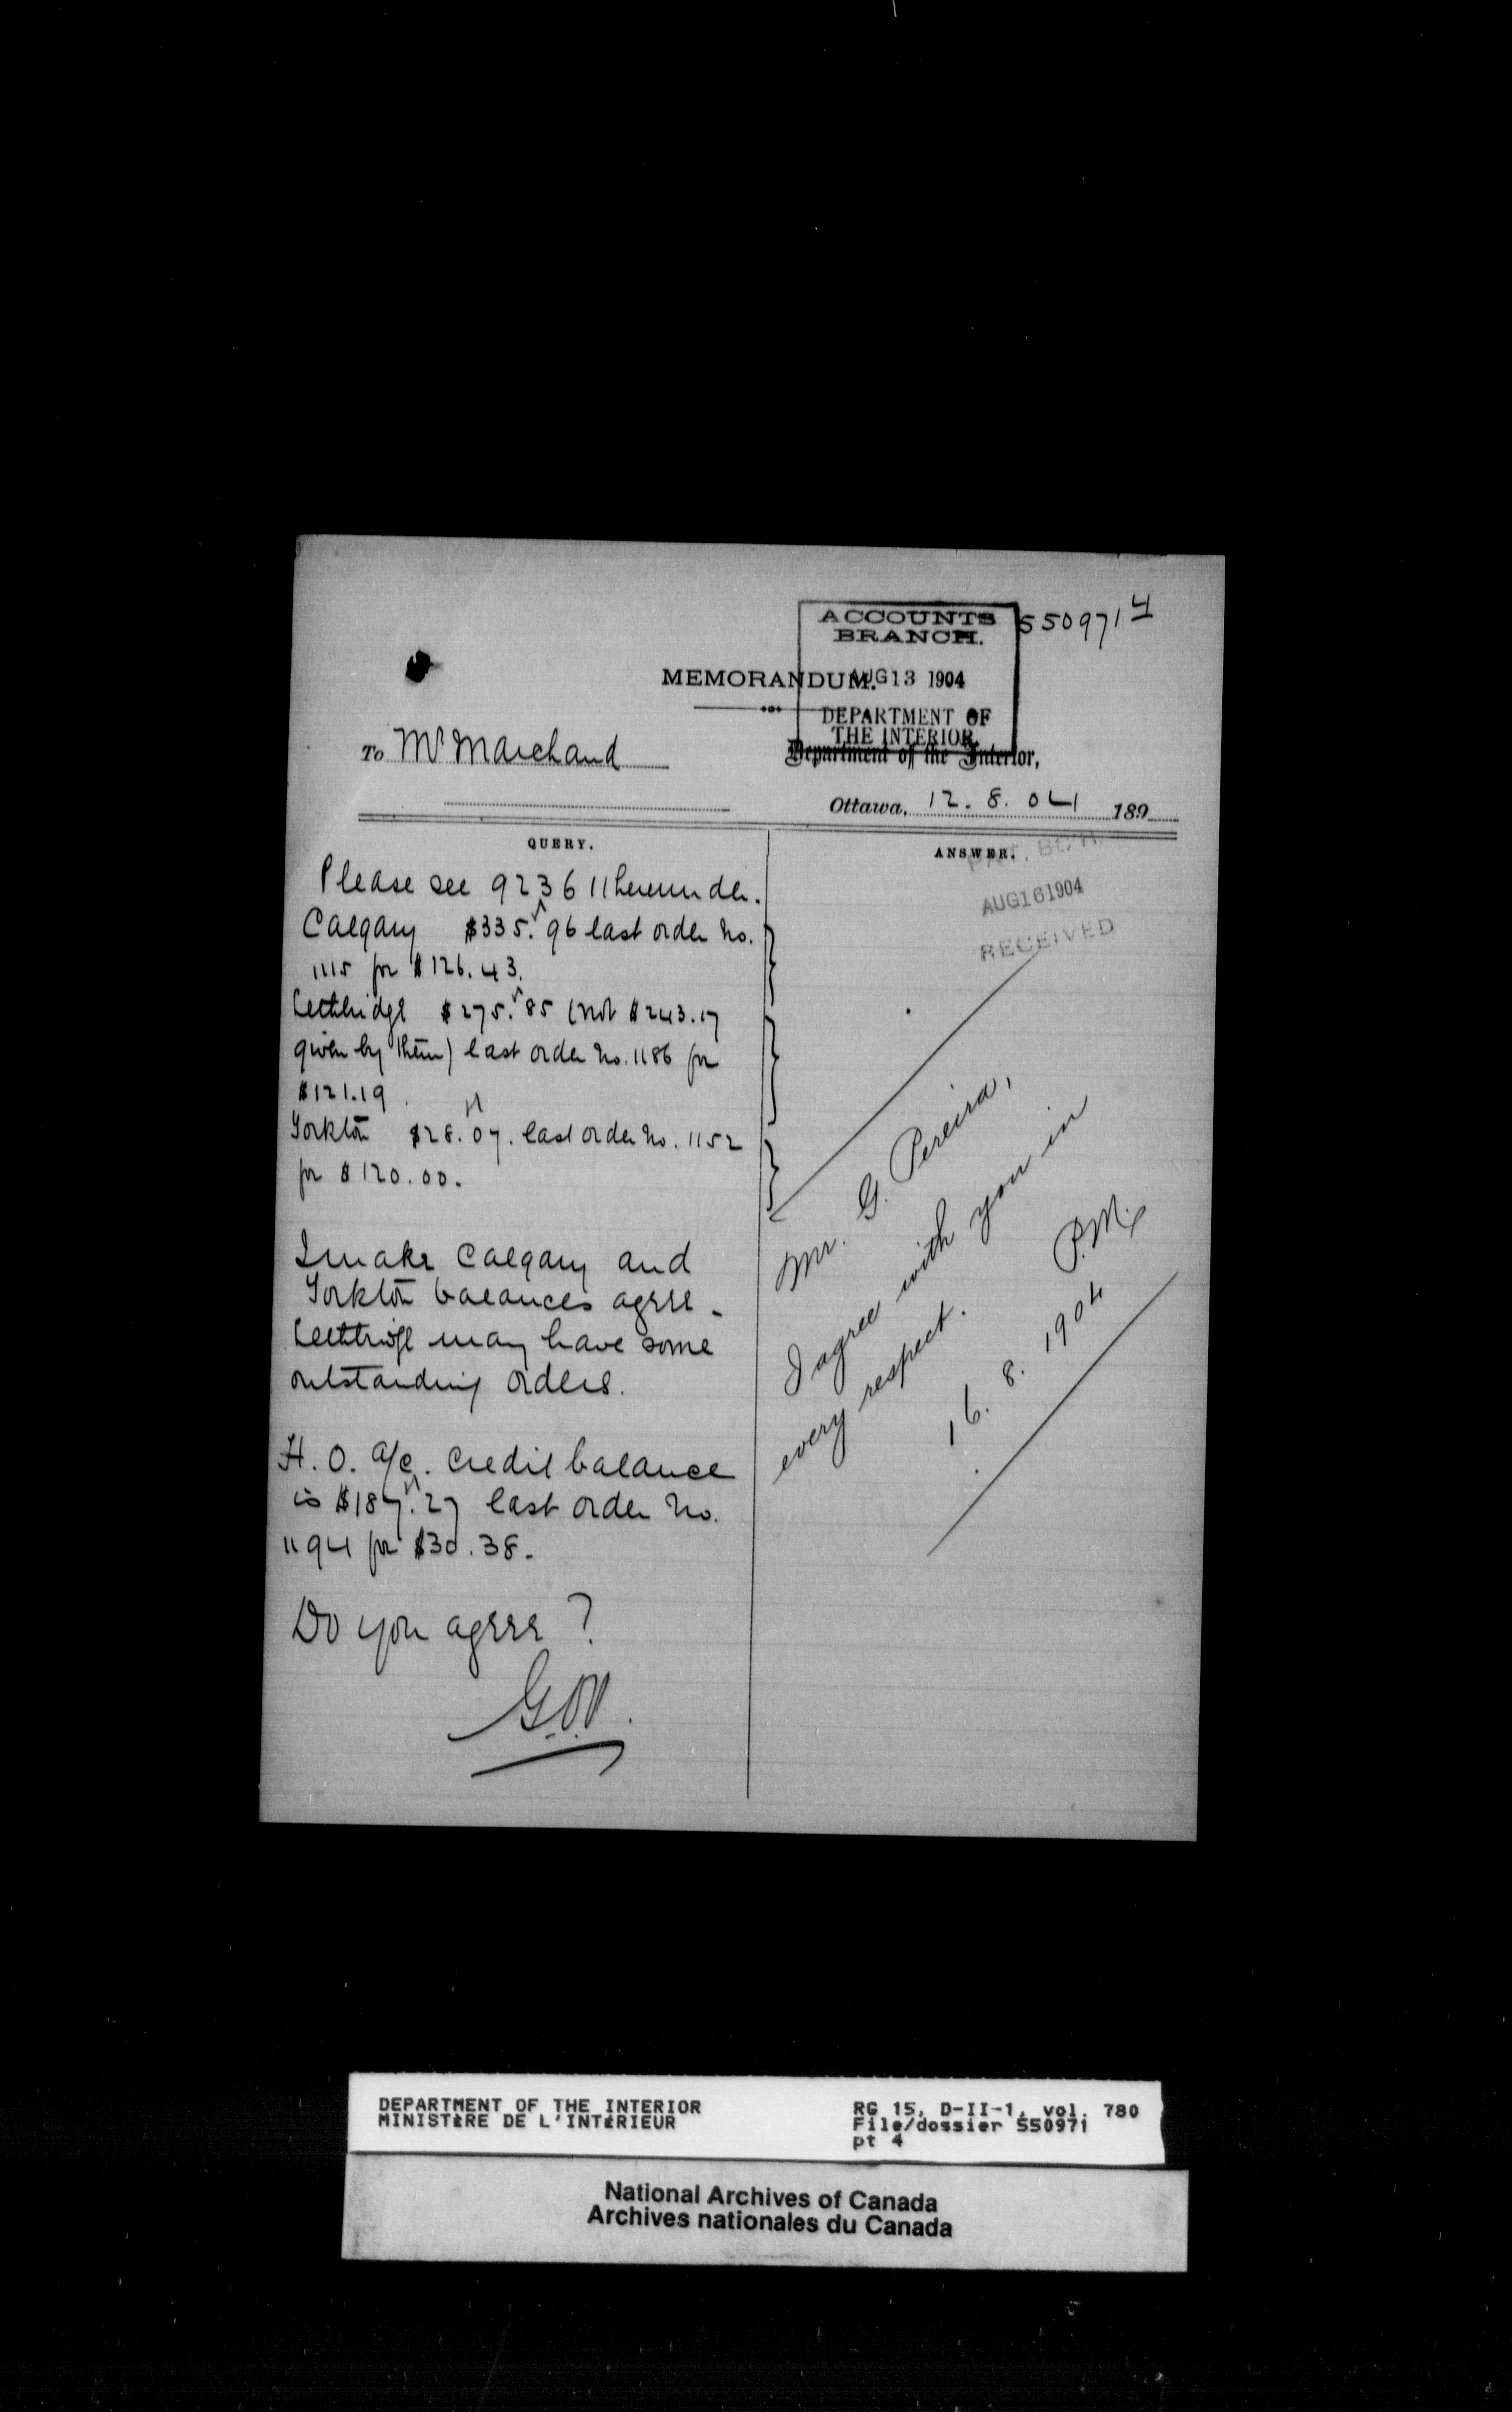 550971 4
ACCOUNTS
BRANCH.
AUG 13 1904
DEPARTMENT OF
THE INTERIOR.
MEMORANDUM.
To Mr Marchand
Department of the Interior,
Ottawa, 12. 8. 04 189
QUERY.
Please see 923611 hereunder.
Calgary $335.96 last order No.
1115 for $126.43.
Lethbridge $275.85 (not $243.17
given by them) last order No. 1186 for
$121.19.
Yorkton $28.07. last order No. 1152
for $120.00.
I make Calgary and
Yorkton balances agree.
Lethbridge may have some
outstanding orders.
H. O. a/c. credit balance
is $187.27 last order No.
1194 for $30.38.
Do you agree?
ANSWER.
PAT. BCH.
AUG 16 1904
RECEIVED
Mr. G. Pereira,
I agree with you in
every respect.
P.M.
16. 8. 1904
DEPARTMENT OF THE INTERIOR
MINISTÈRE DE L'INTÉRIEUR
RG 15, D-II-1, vol. 780
File/dossier 550971
pt 4
National Archives of Canada
Archives nationales du Canada